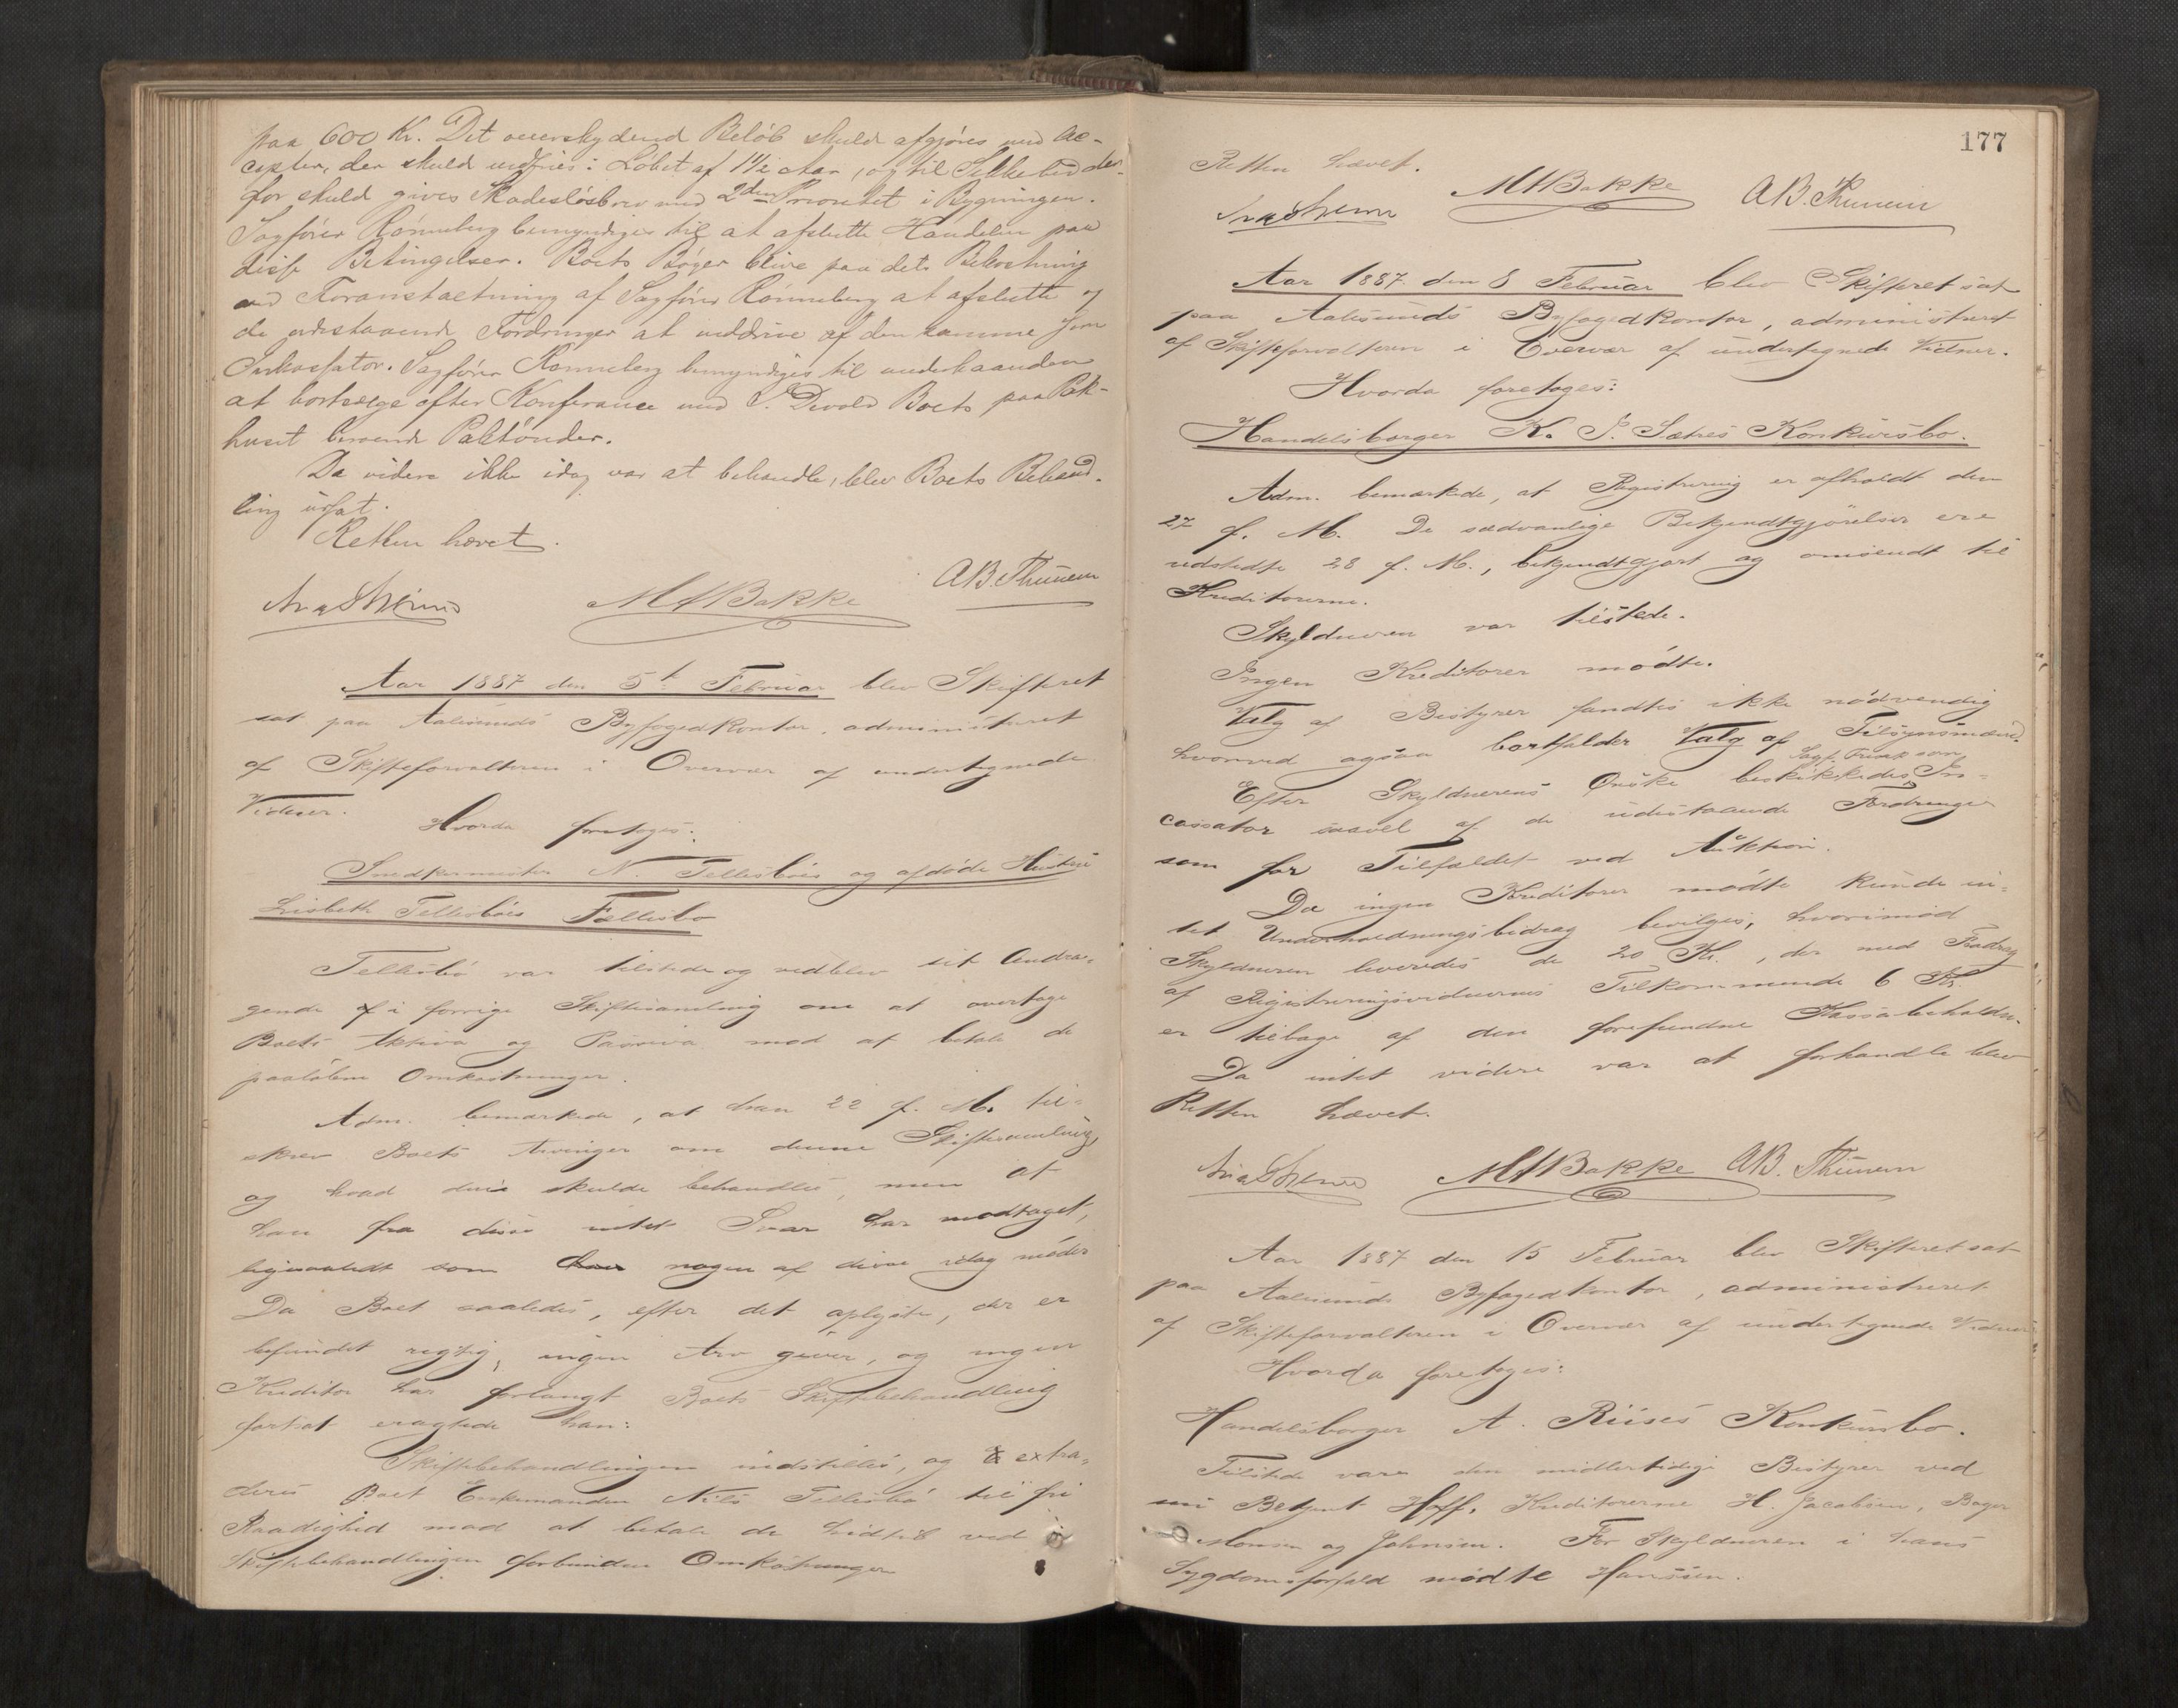 paa 600 Kr. Det overskydende Beløb skulde afgjøres med Ac-
cepter, der skulde indfries i Løbet af 1 1/2 Aar, og til Sikkerhed der-
for skulde gives Skadesløsbrev med 2den Prioritet i Bygningen.
Sagfører Rønneberg bemyndiges til at afslutte Handelen paa
disse Betingelser. Boets Bøger blive paa dets Bekostning
ved Foranstaltning af Sagfører Rønneberg at afslutte og
de udestaaende Fordringer at inddrive af den samme som
Inkassator. Sagfører Rønneberg bemyndiges til underhaanden
at bortsælge efter Konferance med Devold Boets paa Pak-
huset beroende Paktønder.
Da videre ikke idag var at behandle, blev Boets Behand-
ling udsat.
Retten hævet.
M Bakke A.B. Thunem
Aar 1887 den 5te Februar blev Skifteret
sat paa Aalesunds Byfogedkontor, administreret
af Skifteforvalteren i Overvær af undertegnede
Vidner.
Hvorda foretoges:
Snedkermester N. Tellisbøes og afdøde Hustru
Lisbeth Tellisbøes Fællesbo
Tellisbø var tilstede og vedblev sit Andra-
gende i forrige Skiftesamling om at overtage
Boets Aktiva og Passiva mod at betale de
paaløbne Omkostninger.
Adm. bemærkede, at han 22 f. M. til-
skrev Boets Arvinger om denne Skiftesamling
og hvad deri skulde behandles, men at
han fra disse intet Svar har modtaget,
ligesaalidt som nogen af disse idag møder
Da Boet saaledes, efter det oplyste, der er
befundet rigtig, ingen Arv giver, og ingen
Kreditor har forlangt Boets Skiftebehandling
fortsat eragtede han:
Skiftebehandlingen indstilles, og extra-
deres Boet Enkemanden Nils Tellisbø til fri
Raadighed mod at betale de hidtil ved
Skiftebehandlingen forbundne Omkostninger
177
Retten hævet.
M Bakke A.B. Thunem
Aar 1887 den 8 Februar blev Skifteret sat
paa Aalesunds Byfogedkontor, administreret
af Skifteforvalteren i Overvær af undertegnede Vidner.
Hvorda foretoges:
Handelsborger K. J. Sætres Konkursbo.
Adm. bemærkede, at Registrering er afholdt den
27 f. M. De sædvanlige Bekjendtgjørelser ere
udstedte 28 f. M., bekjendtgjort og omsendt til
Kreditorerne.
Skyldneren var tilstede.
Ingen Kreditorer mødte.
Valg af Bestyrer fandtes ikke nødvendig
hvorved ogsaa bortfalder Valg af Tilsynsmænd.
Sagf. som
Efter Skyldnerens Ønske beskikkedes In-
cassator saavel af de udestaaende Fordringer
som for Tilfældet ved Auktion.
Da ingen Kreditorer mødte kunde in-
tet Underholdningsbidrag bevilges, hvorimod
Skyldneren leveredes de 20 Kr., der med Fradrag
af Registreringsvidnernes Tilkommende 6 Kr.
er tilbage af den forefundne Kassabeholdn.
Da intet videre var at forhandle blev
Retten hævet.
M Bakke A.B. Thunem
Aar 1887 den 15 Februar blev Skifteret sat
paa Aalesunds Byfogedkontor, administreret
af Skifteforvalteren i Overvær af undertegnede Vidner
Hvorda foretoges:
Handelsborger A. Riises Konkursbo.
Tilstede vare den midlertidige Bestyrer ved
sin Betjent Hoff, Kreditorerne H. Jacobsen, Bager
Monsen og Johnsen. For Skyldneren i hans
Sygdomsforfald mødte Hanssen.